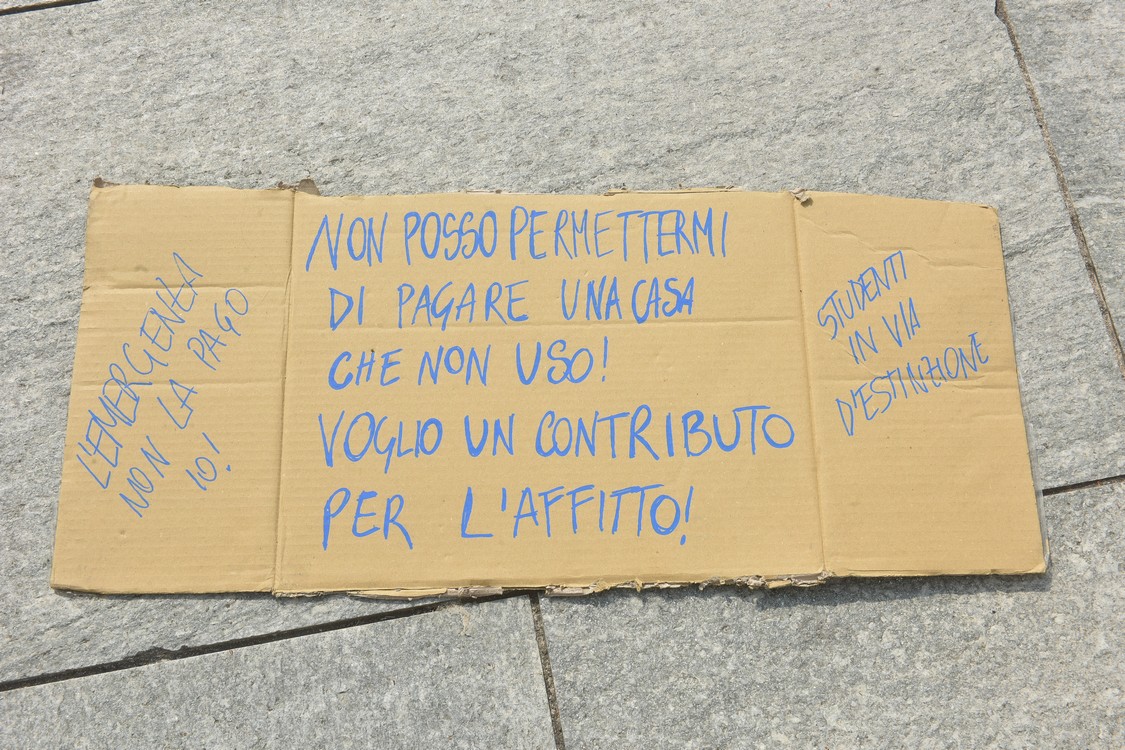 L'EMERGENZA
NON LA PAGO
IO!
NON POSSO PERMETTERMI
DI PAGARE UNA CASA
CHE NON USO!
VOGLIO UN CONTRIBUTO
PER L'AFFITTO!
STUDENTI
IN VIA
D'ESTINZIONE